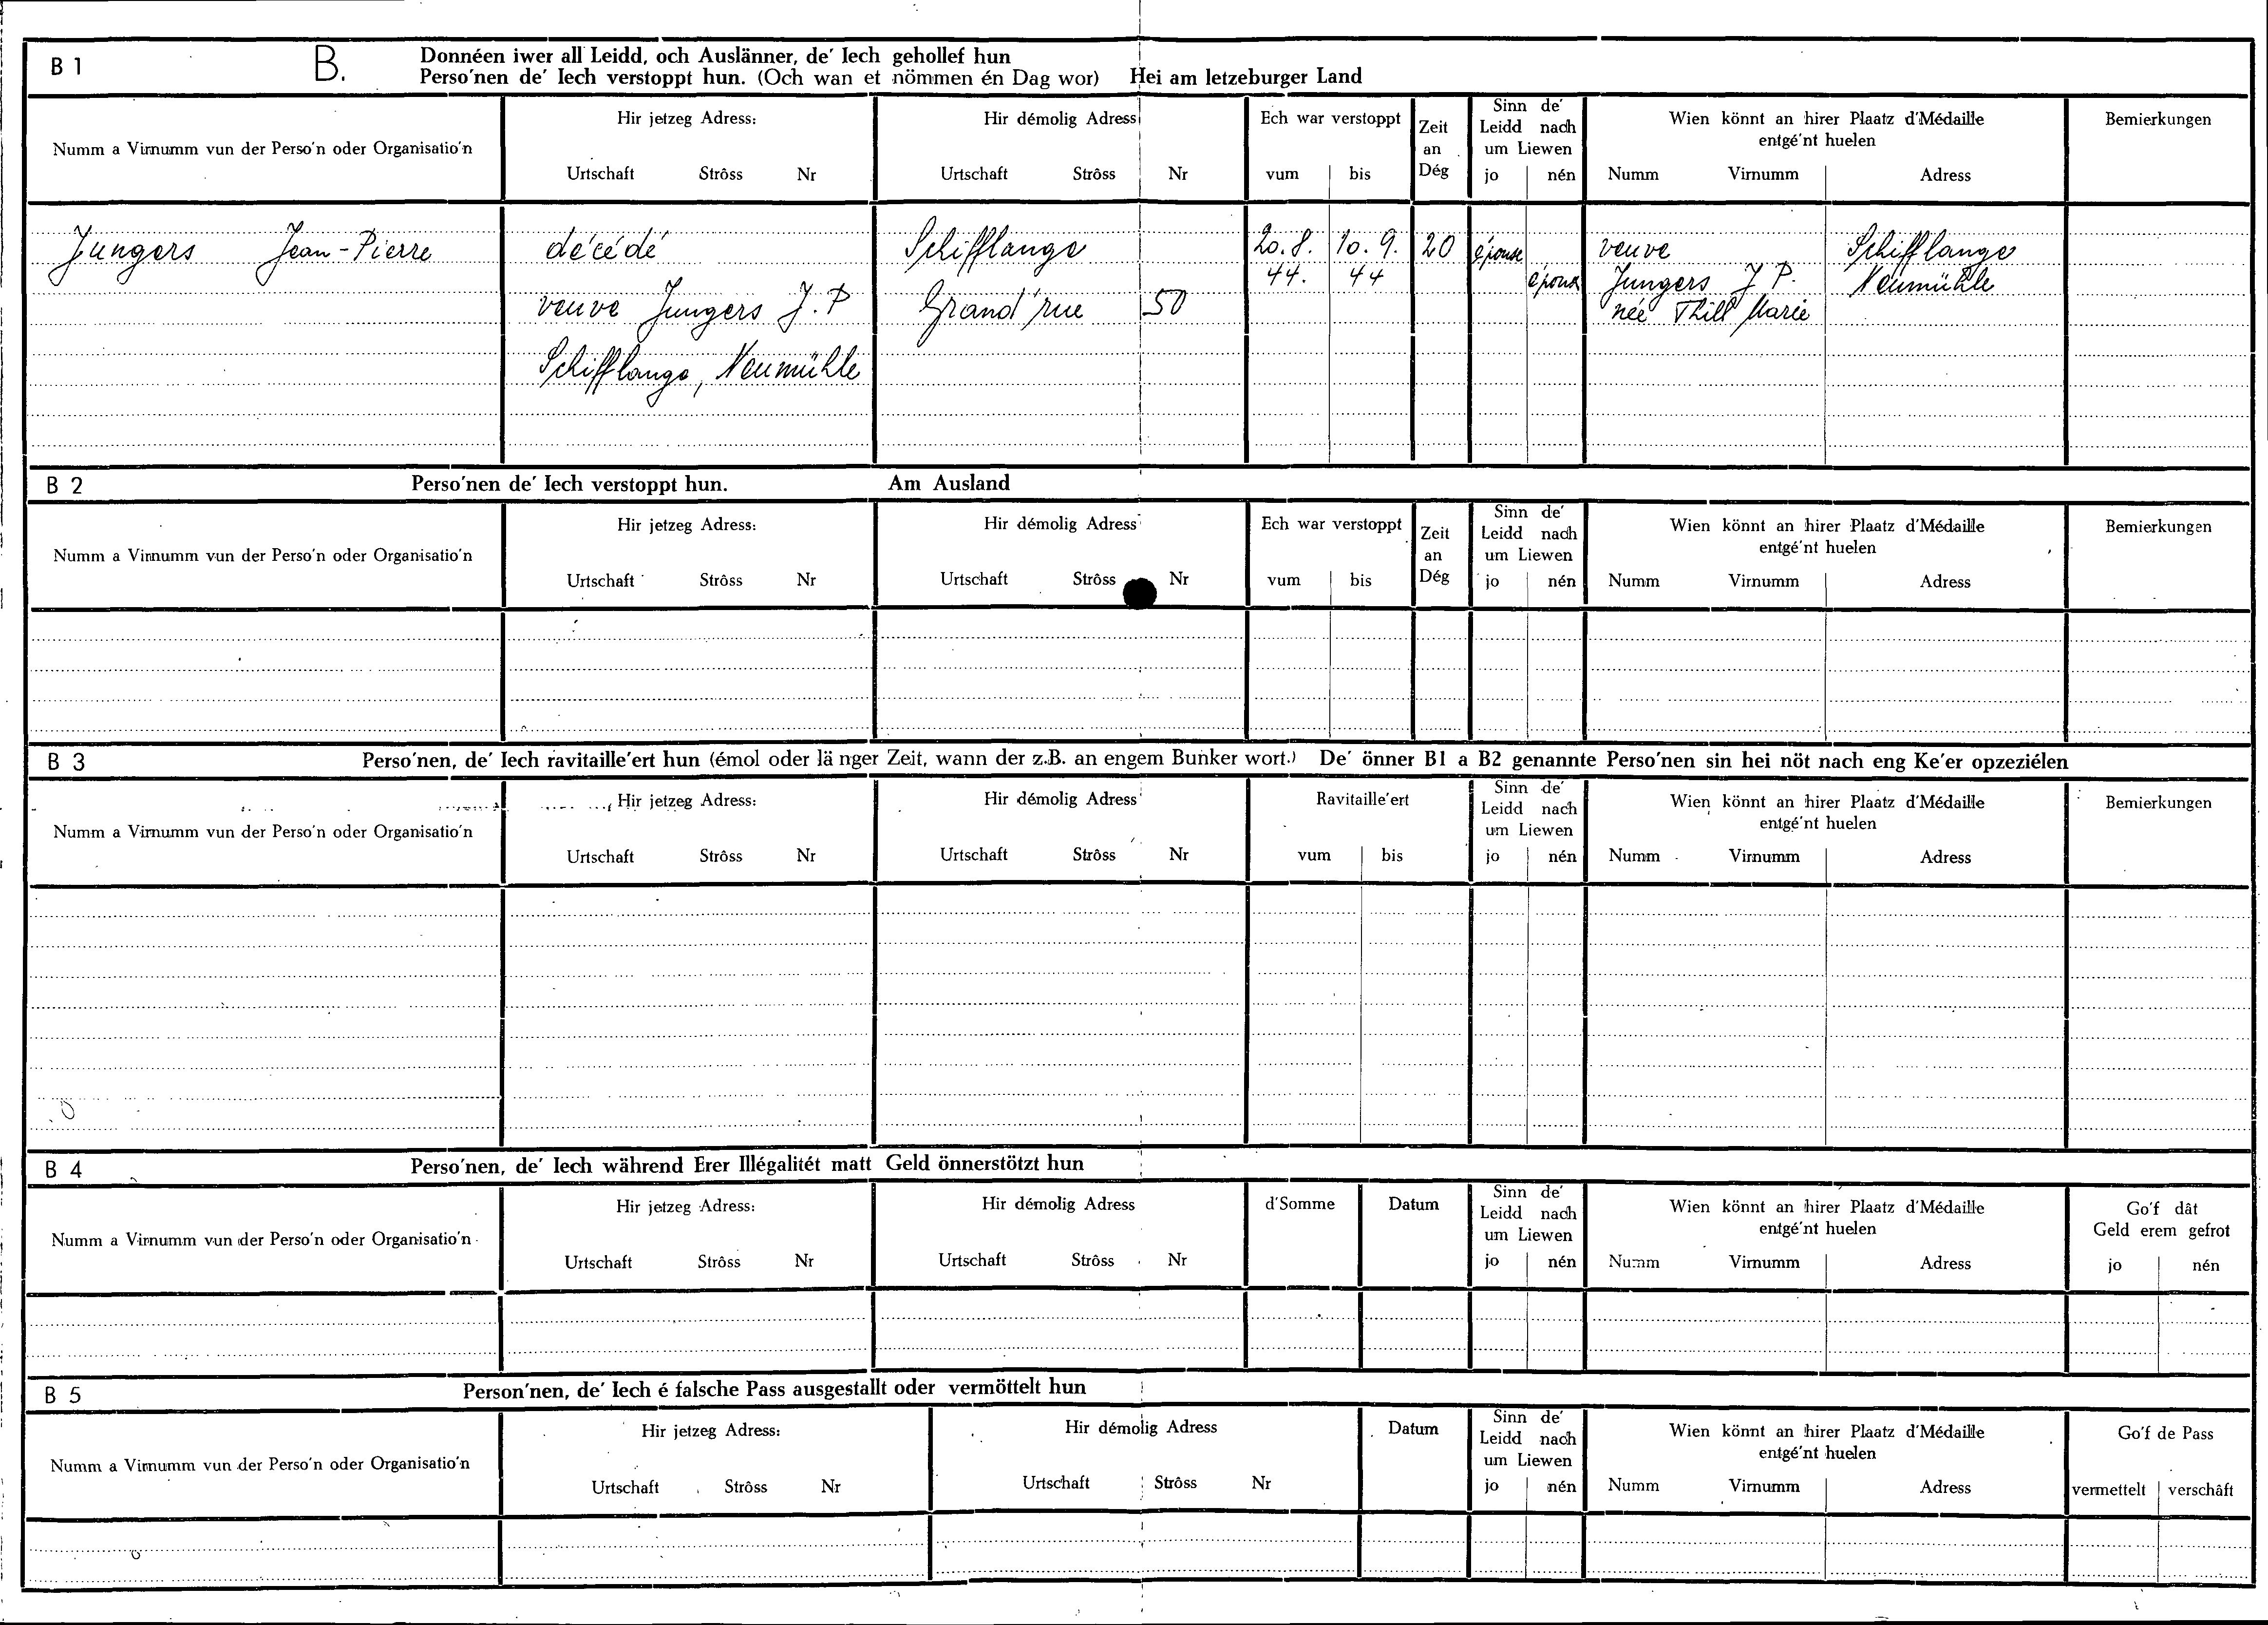 B 1 B. Donnéen iwer all Leidd, och Auslänner, de' Iech gehollef hun
Perso'nen de' Iech verstoppt hun. (Och wan et nömmen én Dag wor) Hei am letzeburger Land
Numm a Virnumm vun der Perso'n oder Organisatio'n
Hir jetzeg Adress:
Urtschaft Strôss Nr
Hir démolig Adress
Urtschaft Strôss Nr
Ech war verstoppt
vum bis
Zeit
an
Dég
Sinn de'
Leidd nach
um Liewen
jo nén
Wien könnt an hirer Plaatz d'Médaille
entgé'nt huelen
Numm Virnumm Adress
Bemierkungen
Jungers Jean-Pierre
décédé
veuve Jungers J. P
Schifflange, Neumühle
Schifflange
Grand'rue 50
20.8. 10.9. 20
44. 44
épouse
époux
veuve
Jungers J P.
née Thill Marie
Schifflange
Neumühle
B 2 Perso'nen de' Iech verstoppt hun. Am Ausland
Numm a Virnumm vun der Perso'n oder Organisatio'n
Hir jetzeg Adress:
Urtschaft Strôss Nr
Hir démolig Adress
Urtschaft Strôss Nr
Ech war verstoppt
vum bis
Zeit
an
Dég
Sinn de'
Leidd nach
um Liewen
jo nén
Wien könnt an hirer Plaatz d'Médaille
entgé'nt huelen
Numm Virnumm Adress
Bemierkungen
B 3 Perso'nen, de' Iech ravitaille'ert hun (émol oder länger Zeit, wann der z.B. an engem Bunker wort.) De' önner B1 a B2 genannte Perso'nen sin hei nöt nach eng Ke'er opzeziélen
Numm a Virnumm vun der Perso'n oder Organisatio'n
Hir jetzeg Adress:
Urtschaft Strôss Nr
Hir démolig Adress
Urtschaft Strôss Nr
Ravitaille'ert
vum bis
Sinn de'
Leidd nach
um Liewen
jo nén
Wien könnt an hirer Plaatz d'Médaille
entgé'nt huelen
Numm Virnumm Adress
Bemierkungen
B 4 Perso'nen, de' Iech während Erer Illégalitét matt Geld önnerstötzt hun
Numm a Virnumm vun der Perso'n oder Organisatio'n
Hir jetzeg Adress:
Urtschaft Strôss Nr
Hir démolig Adress
Urtschaft Strôss Nr
d'Somme
Datum
Sinn de'
Leidd nach
um Liewen
jo nén
Wien könnt an hirer Plaatz d'Médaille
entgé'nt huelen
Numm Virnumm Adress
Go'f dât
Geld erem gefrot
jo nén
B 5 Person'nen, de' Iech é falsche Pass ausgestallt oder vermöttelt hun
Numm a Virnumm vun der Perso'n oder Organisatio'n
Hir jetzeg Adress:
Urtschaft Strôss Nr
Hir démolig Adress
Urtschaft Strôss Nr
Datum
Sinn de'
Leidd nach
um Liewen
jo nén
Wien könnt an hirer Plaatz d'Médaille
entgé'nt huelen
Numm Virnumm Adress
Go'f de Pass
vermettelt verschâft